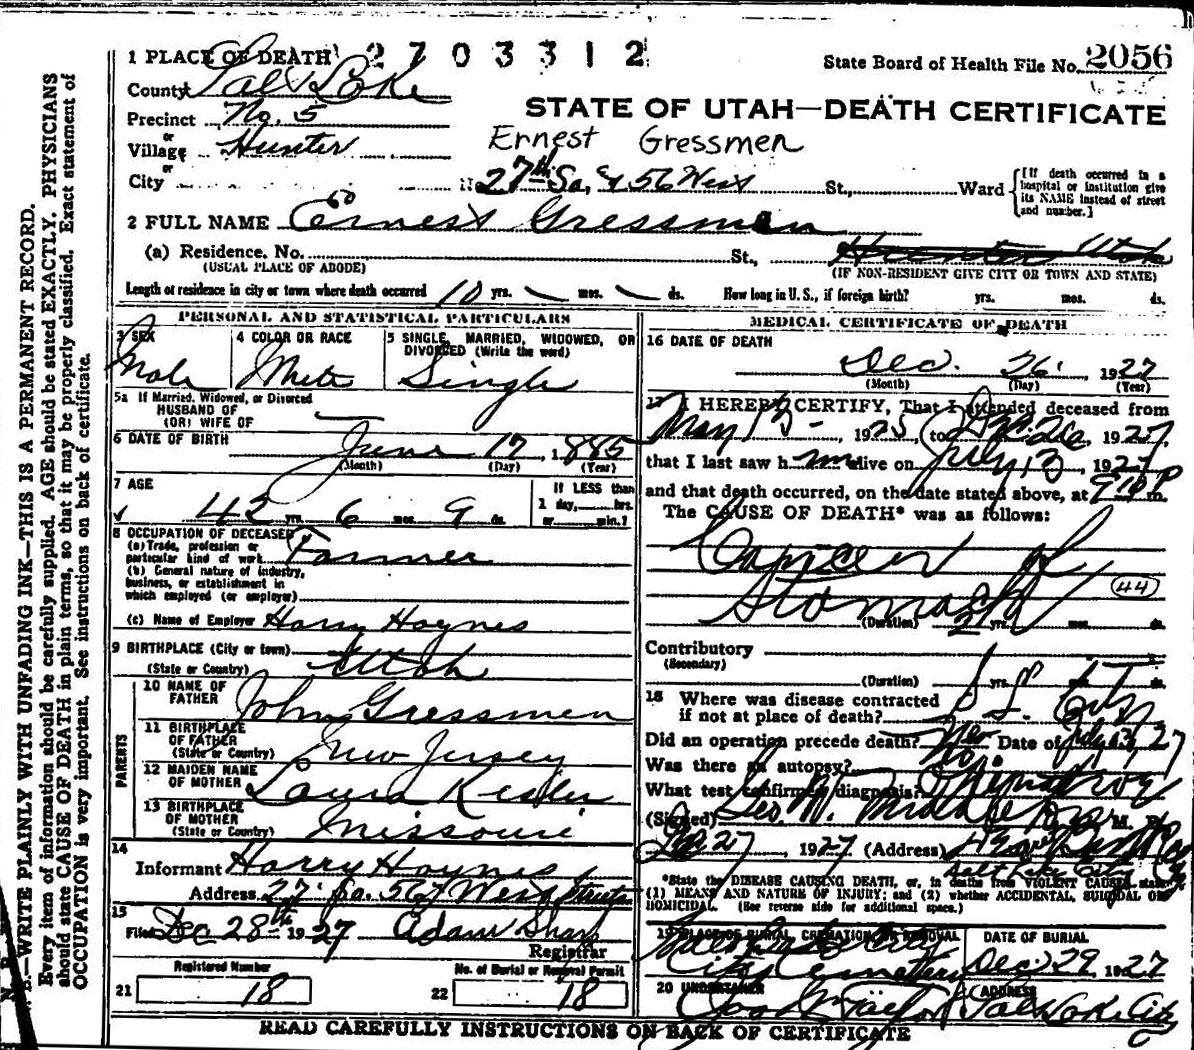 1 PLACE OF DEATH 2 7 0 3 3 1 2
State Board of Health File No. 2056
County Salt Lake
STATE OF UTAH—DEATH CERTIFICATE
Precinct No. 5
Ernest Gressmen
or
Village Hunter
or
City 27th So. & 56 West St., Ward
[If death occurred in a hospital or institution give its NAME instead of street and number.]
2 FULL NAME Ernest Gressmen
(a) Residence. No. St., Hunter Utah
(USUAL PLACE OF ABODE) (IF NON-RESIDENT GIVE CITY OR TOWN AND STATE)
Length of residence in city or town where death occurred 10 yrs. mos. ds. How long in U. S., if foreign birth? yrs. mos. ds.
PERSONAL AND STATISTICAL PARTICULARS
3 SEX
Male
4 COLOR OR RACE
White
5 SINGLE, MARRIED, WIDOWED, OR DIVORCED (Write the word)
Single
5a If Married, Widowed, or Divorced
HUSBAND OF
(OR) WIFE OF
6 DATE OF BIRTH
June 17 1885
(Month) (Day) (Year)
7 AGE
42 yrs. 6 mos. 9 ds.
If LESS than
1 day, hrs.
or min.?
8 OCCUPATION OF DECEASED
(a) Trade, profession or
particular kind of work Farmer
(b) General nature of industry,
business, or establishment in
which employed (or employer)
(c) Name of Employer Harry Haynes
9 BIRTHPLACE (City or town)
(State or Country) Utah
PARENTS
10 NAME OF
FATHER John Gressmen
11 BIRTHPLACE
OF FATHER
(State or Country) New Jersey
12 MAIDEN NAME
OF MOTHER Laura Kesler
13 BIRTHPLACE
OF MOTHER
(State or Country) Missouri
14
Informant Harry Haynes
Address 27 So. 56 West
15
Filed Dec 28th 1927 Adam Sharp
Registrar
Registered Number
21 18
No. of Burial or Removal Permit
22 18
MEDICAL CERTIFICATE OF DEATH
16 DATE OF DEATH
Dec. 26. 1927
(Month) (Day) (Year)
17 I HEREBY CERTIFY, That I attended deceased from
May 13 - 1925 to Dec. 26, 1927,
that I last saw him alive on July 13, 1927
and that death occurred, on the date stated above, at 9 10 P m.
The CAUSE OF DEATH* was as follows:
Cancer of
Stomach
44
(Duration) 2 yrs. mos. ds.
Contributory
(Secondary)
(Duration) yrs. mos. ds.
18 Where was disease contracted
if not at place of death? S. L. City
Did an operation precede death? Date of July 27
Was there an autopsy? No.
What test confirmed diagnosis?
(Signed) Geo. W. Middleton M. D.
Dec 27, 1927 (Address)
Salt Lake City
*State the DISEASE CAUSING DEATH, or, in deaths from VIOLENT CAUSES, state
(1) MEANS AND NATURE OF INJURY; and (2) whether ACCIDENTAL, SUICIDAL OR
HOMICIDAL. (See reverse side for additional space.)
19 PLACE OF BURIAL, CREMATION OR REMOVAL
City Cemetery
DATE OF BURIAL
Dec 29 1927
20 UNDERTAKER
Taylor
ADDRESS
Salt Lake City
READ CAREFULLY INSTRUCTIONS ON BACK OF CERTIFICATE
N. B.—WRITE PLAINLY WITH UNFADING INK—THIS IS A PERMANENT RECORD.
Every item of information should be carefully supplied. AGE should be stated EXACTLY. PHYSICIANS
should state CAUSE OF DEATH in plain terms, so that it may be properly classified. Exact statement of
OCCUPATION is very important. See instructions on back of certificate.